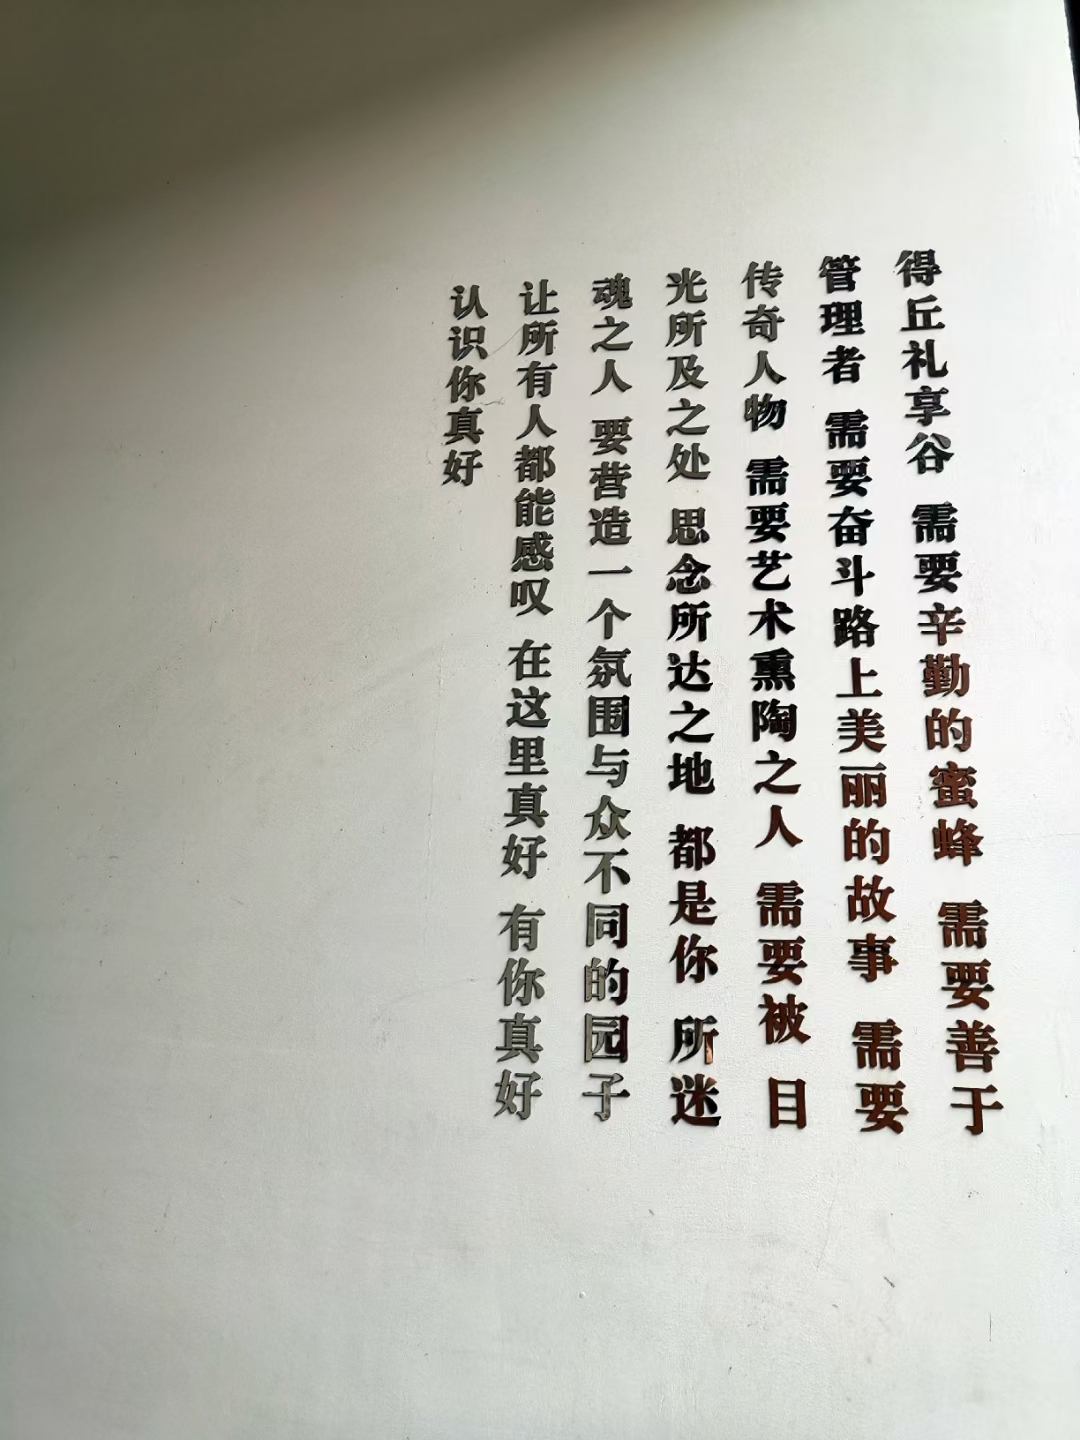 得丘礼享谷 需要辛勤的蜜蜂 需要善于
管理者 需要奋斗路上美丽的故事 需要
传奇人物 需要艺术熏陶之人 需要被 目
光所及之处 思念所达之地 都是你 所迷
魂之人 要营造一个氛围与众不同的园子
让所有人都能感叹 在这里真好 有你真好
认识你真好